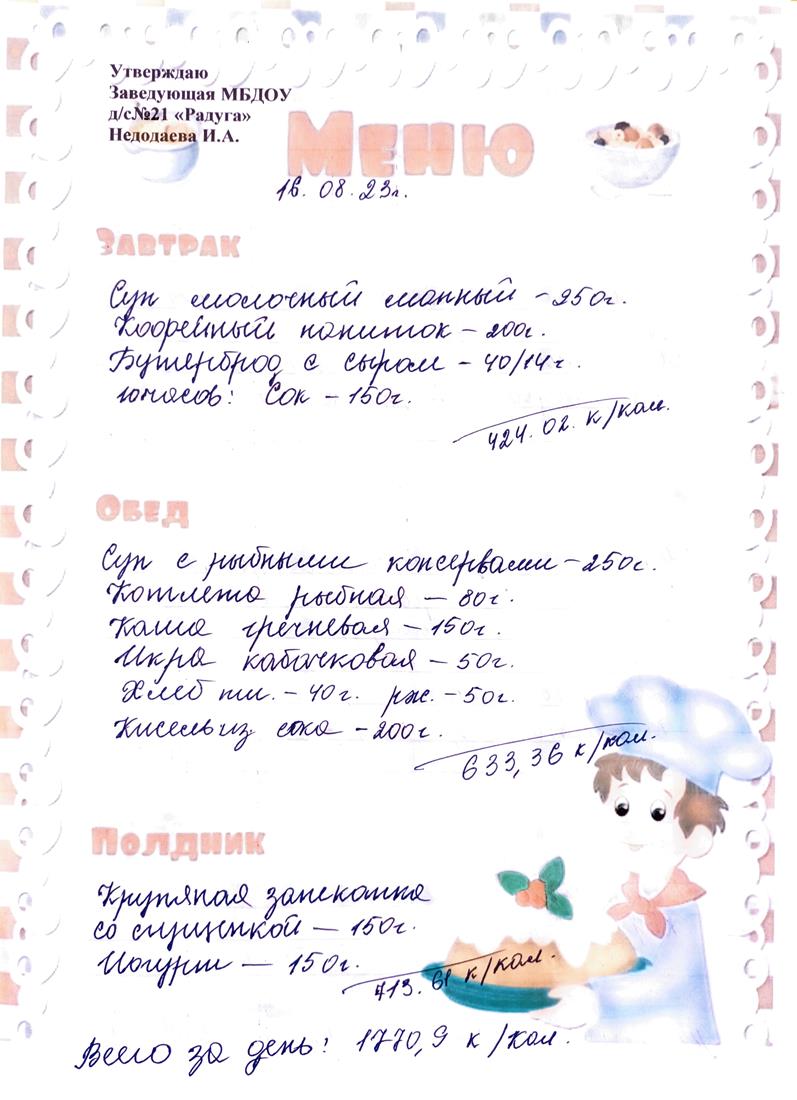 Утверждаю
Заведующая МБДОУ
д/с№21 «Радуга»
Недодаева И.А.
Меню
16. 08. 23г.
Завтрак
Суп молочный манный – 250г.
Кофейный напиток – 200г.
Бутерброд с сыром – 40/14г.
10часов: Сок – 150г.
424. 02. к/кал.
Обед
Суп с рыбными консервами – 250г.
Котлета рыбная – 80г.
Каша гречневая – 150г.
Икра кабачковая – 50г.
Хлеб пш. – 40г. рж. – 50г.
Кисель из сока – 200г.
633,36 к/кал.
Полдник
Крупяная запеканка
со сгущенкой – 150г.
Йогурт – 150г.
713. 61 к/кал.
Всего за день: 1770,9 к/кал.